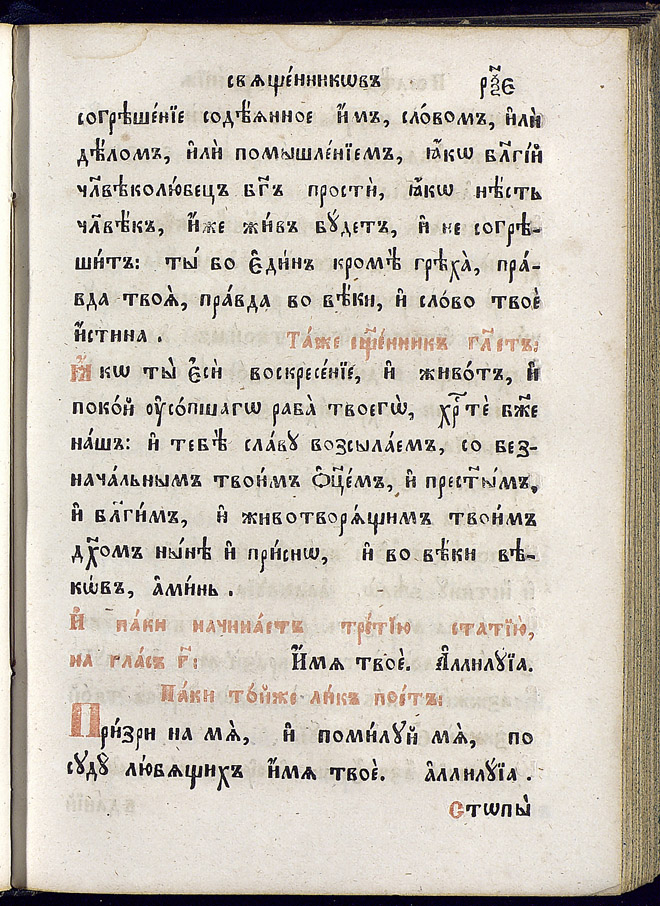 свѧще́нникѡвъ р҃ѯе
согрѣше́нїе содѣ́ѧнное и҆́мъ, сло́вомъ, и҆лѝ
дѣ́ломъ, и҆лѝ помышле́нїемъ, ꙗ҆́кѡ бл҃гі́й
чл҃вѣколю́бецъ бг҃ъ простѝ, ꙗ҆́кѡ нѣ́сть
чл҃вѣ́къ, и҆́же жи́въ бꙋ́детъ, и҆ не согрѣ-
ши́тъ: ты́ бо є҆ди́нъ кромѣ̀ грѣха̀, пра́-
вда твоѧ̀, пра́вда во вѣ́ки, и҆ сло́во твоѐ
и҆́стина. Та́же сщ҃е́нникъ гл҃етъ:
Ꙗ҆́кѡ ты̀ є҆сѝ воскресе́нїе, и҆ живо́тъ, и҆
поко́й ᲂу҆со́пшагѡ раба̀ твоегѡ̀, хрⷭ҇тѐ бж҃е
на́шъ: и҆ тебѣ̀ сла́вꙋ возсыла́емъ, со без-
нача́льнымъ твои́мъ Ѻ҆ц҃е́мъ, и҆ прест҃ы́мъ,
и҆ бл҃ги́мъ, и҆ животворѧ́щимъ твои́мъ
дх҃омъ ны́нѣ и҆ при́снѡ, и҆ во вѣ́ки вѣ-
кѡ́въ, а҆ми́нь.
И҆ па́ки начина́етъ тре́тїю статїю̀,
на гла́съ г҃: И҆́мѧ твоѐ. А҆ллилꙋ́їа.
Па́ки то́йже ли́къ пое́тъ:
При́зри на мѧ̀, и҆ поми́лꙋй мѧ̀, по
сꙋдꙋ̀ лю́бѧщихъ и҆́мѧ твоѐ. а҆ллилꙋ́їа.
Стѡпы̀